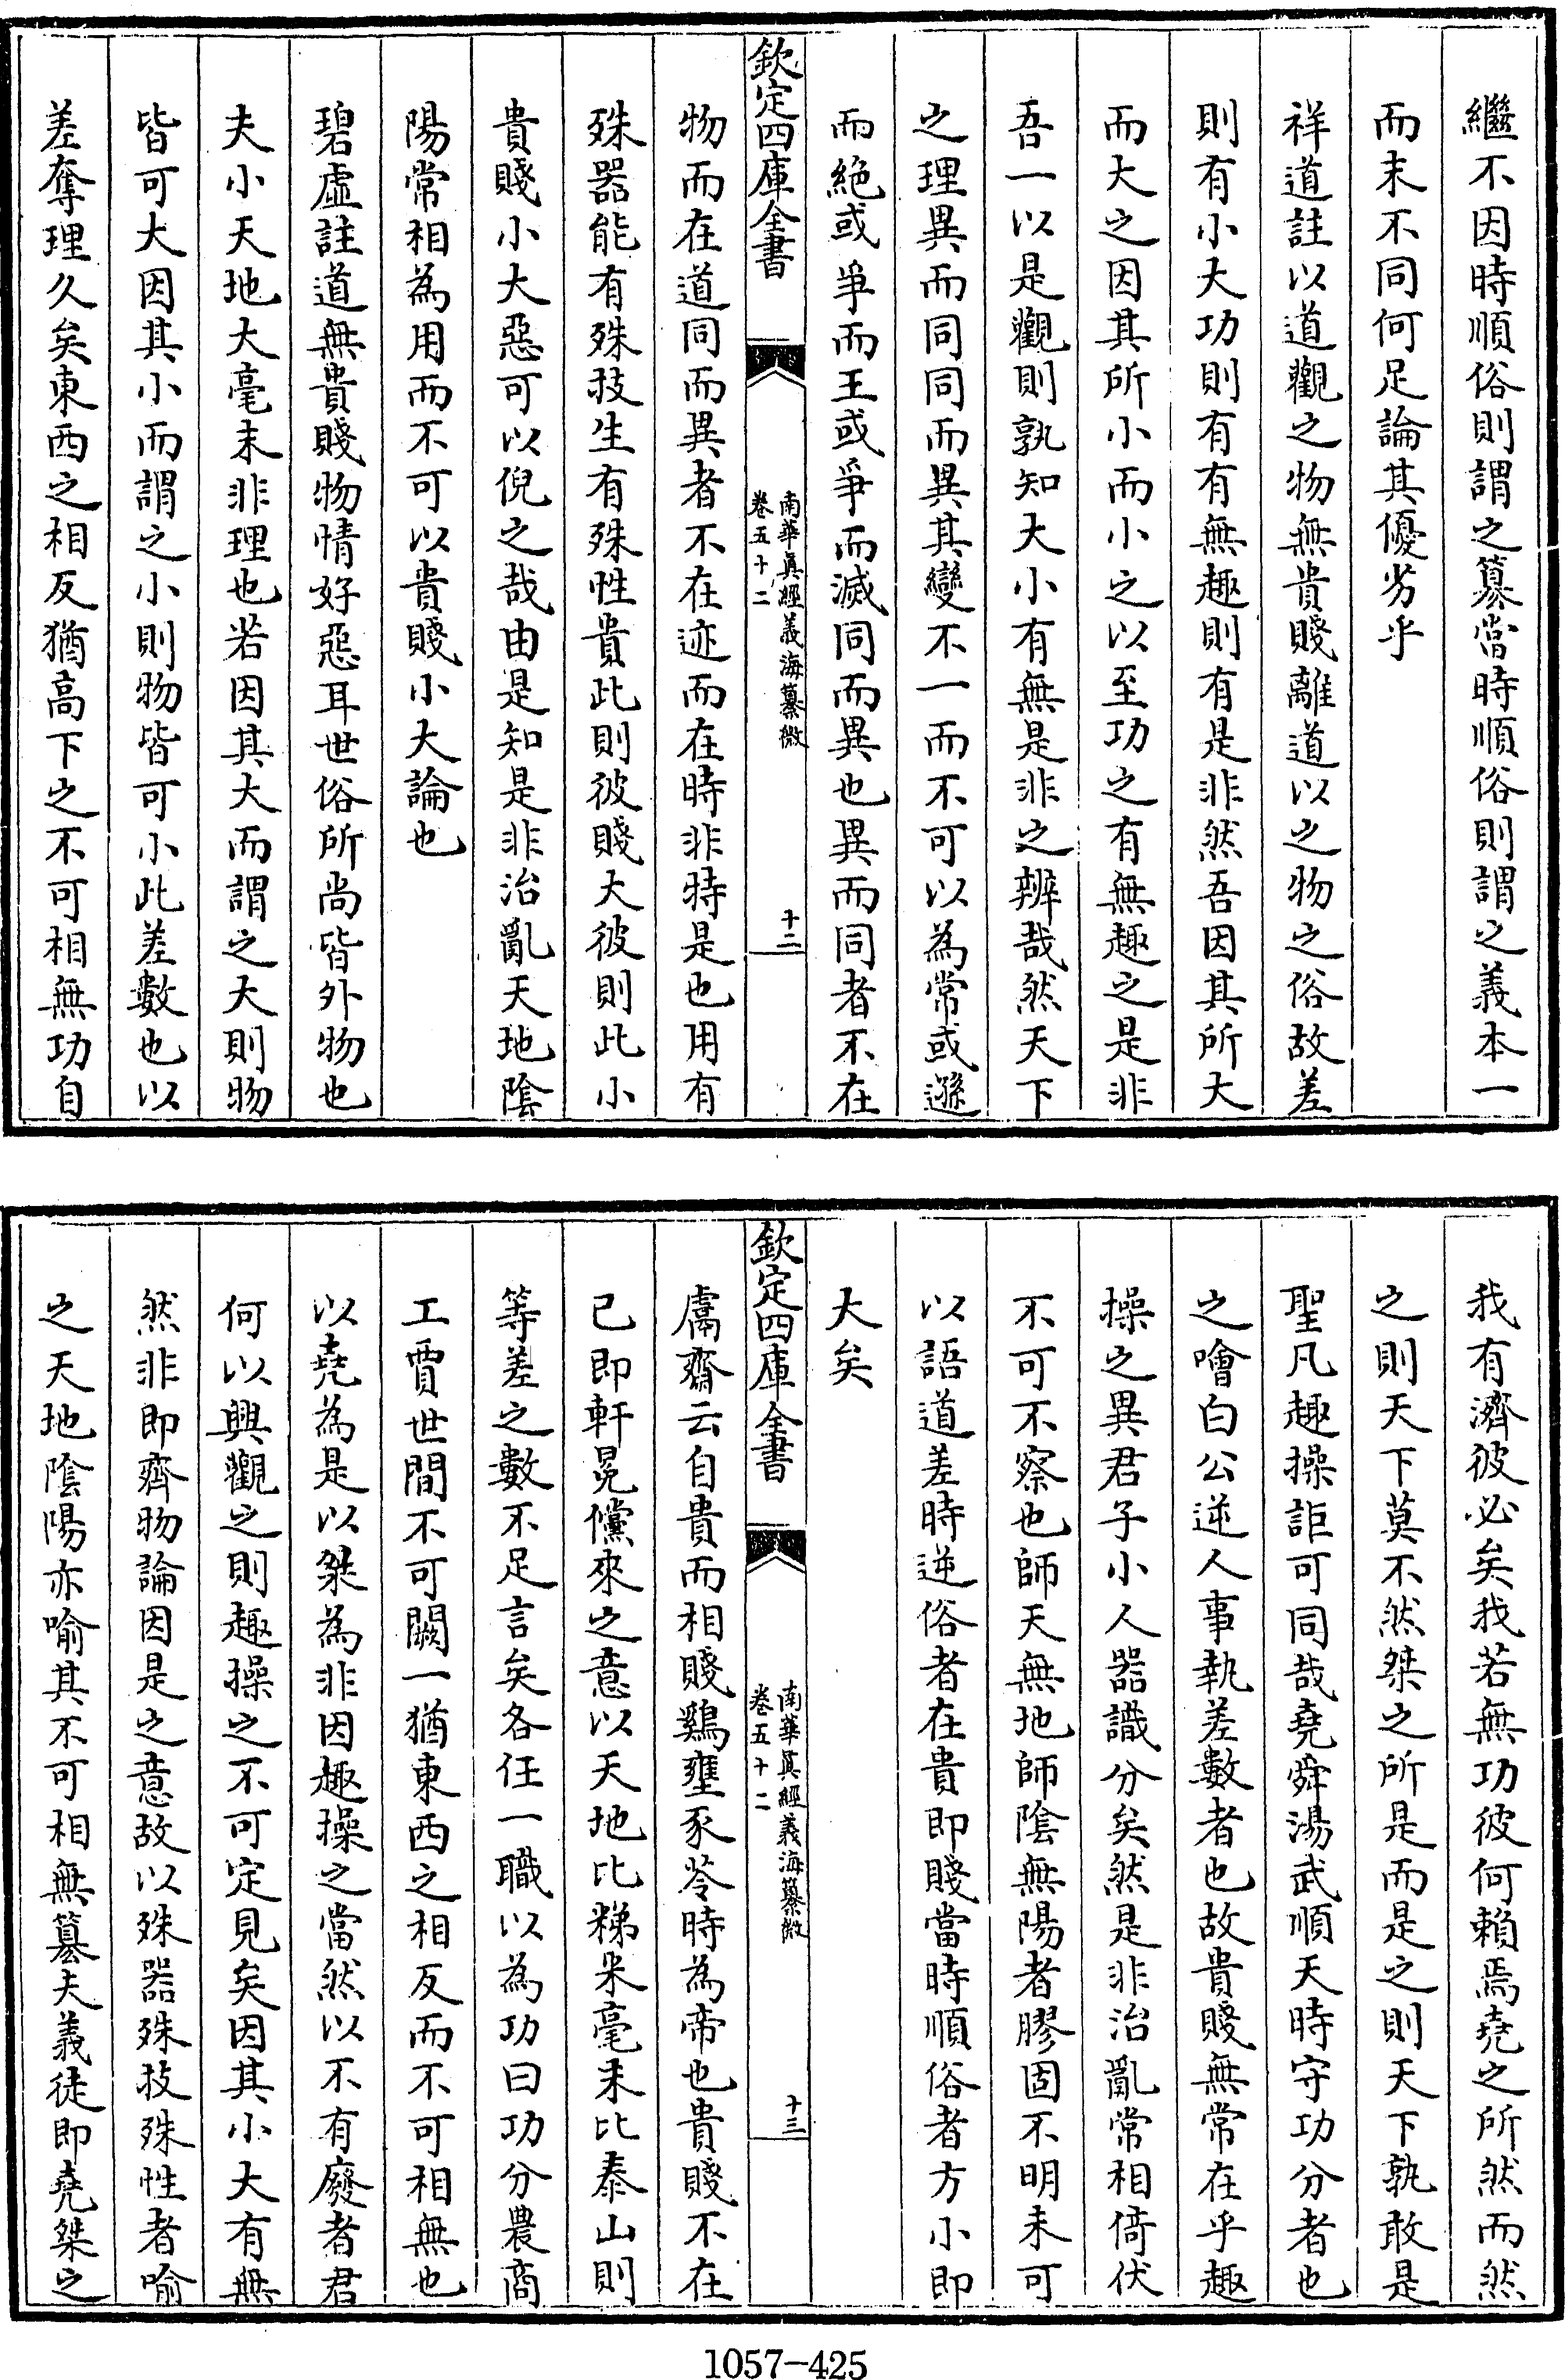 繼不因時順俗則謂之簒當時順俗則謂之義本一
而末不同何足論其優劣乎
祥道註以道觀之物無貴賤離道以之物之俗故差
則有小大功則有有無趣則有是非然吾因其所大
而大之因其所小而小之以至功之有無趣之是非
吾一以是觀則孰知大小有無是非之辨哉然天下
之理異而同同而異其變不一而不可以為常或遜
而絶或爭而王或爭而滅同而異也異而同者不在
欽定四庫全書
南華真經義海纂微
卷五十二
十二
物而在道同而異者不在迹而在時非時是也用有
殊器能有殊技生有殊性貴此則彼賤大彼則此小
貴賤小大惡可以倪之哉由是知是非治亂天地陰
陽常相為用而不可以貴賤小大論也
碧虛註道無貴賤物情好惡耳世俗所尚皆外物也
夫小天地大毫末非理也若因其大而謂之大則物
皆可大因其小而謂之小則物皆可小此差數也以
差奪理久矣東西之相反猶高下之不可相無功自
我有濟彼必矣我若無功彼何賴焉堯之所然而然
之則天下莫不然桀之所是而是之則天下孰敢是
聖凡趣操詎可同哉堯舜湯武順天時守功分者也
之噲白公逆人事執差數者也故貴賤無常在乎趣
操之異君子小人器識分矣然是非治亂常相倚伏
不可不察也師天無地師陰無陽者膠固不明未可
以語道差時逆俗者在貴即賤當時順俗者方小即
大矣
欽定四庫全書
南華真經義海纂微
卷五十二
十三
鬳齋云自貴而相賤鷄壅豕苓時為帝也貴賤不在
已即軒冕儻來之意以天地比稊米毫末比泰山則
等差之數不足言矣各任一職以為功曰功分農商
工賈世間不可闕一猶東西之相反而不可相無也
以堯為是以桀為非因趣操之當然以不有廢者君
何以興觀之則趣操之不可定見矣因其小大有無
然非即齊物論因是之意故以殊器殊技殊性者喻
之天地陰陽亦喻其不可相無簒夫義徒即堯桀之
1057-425